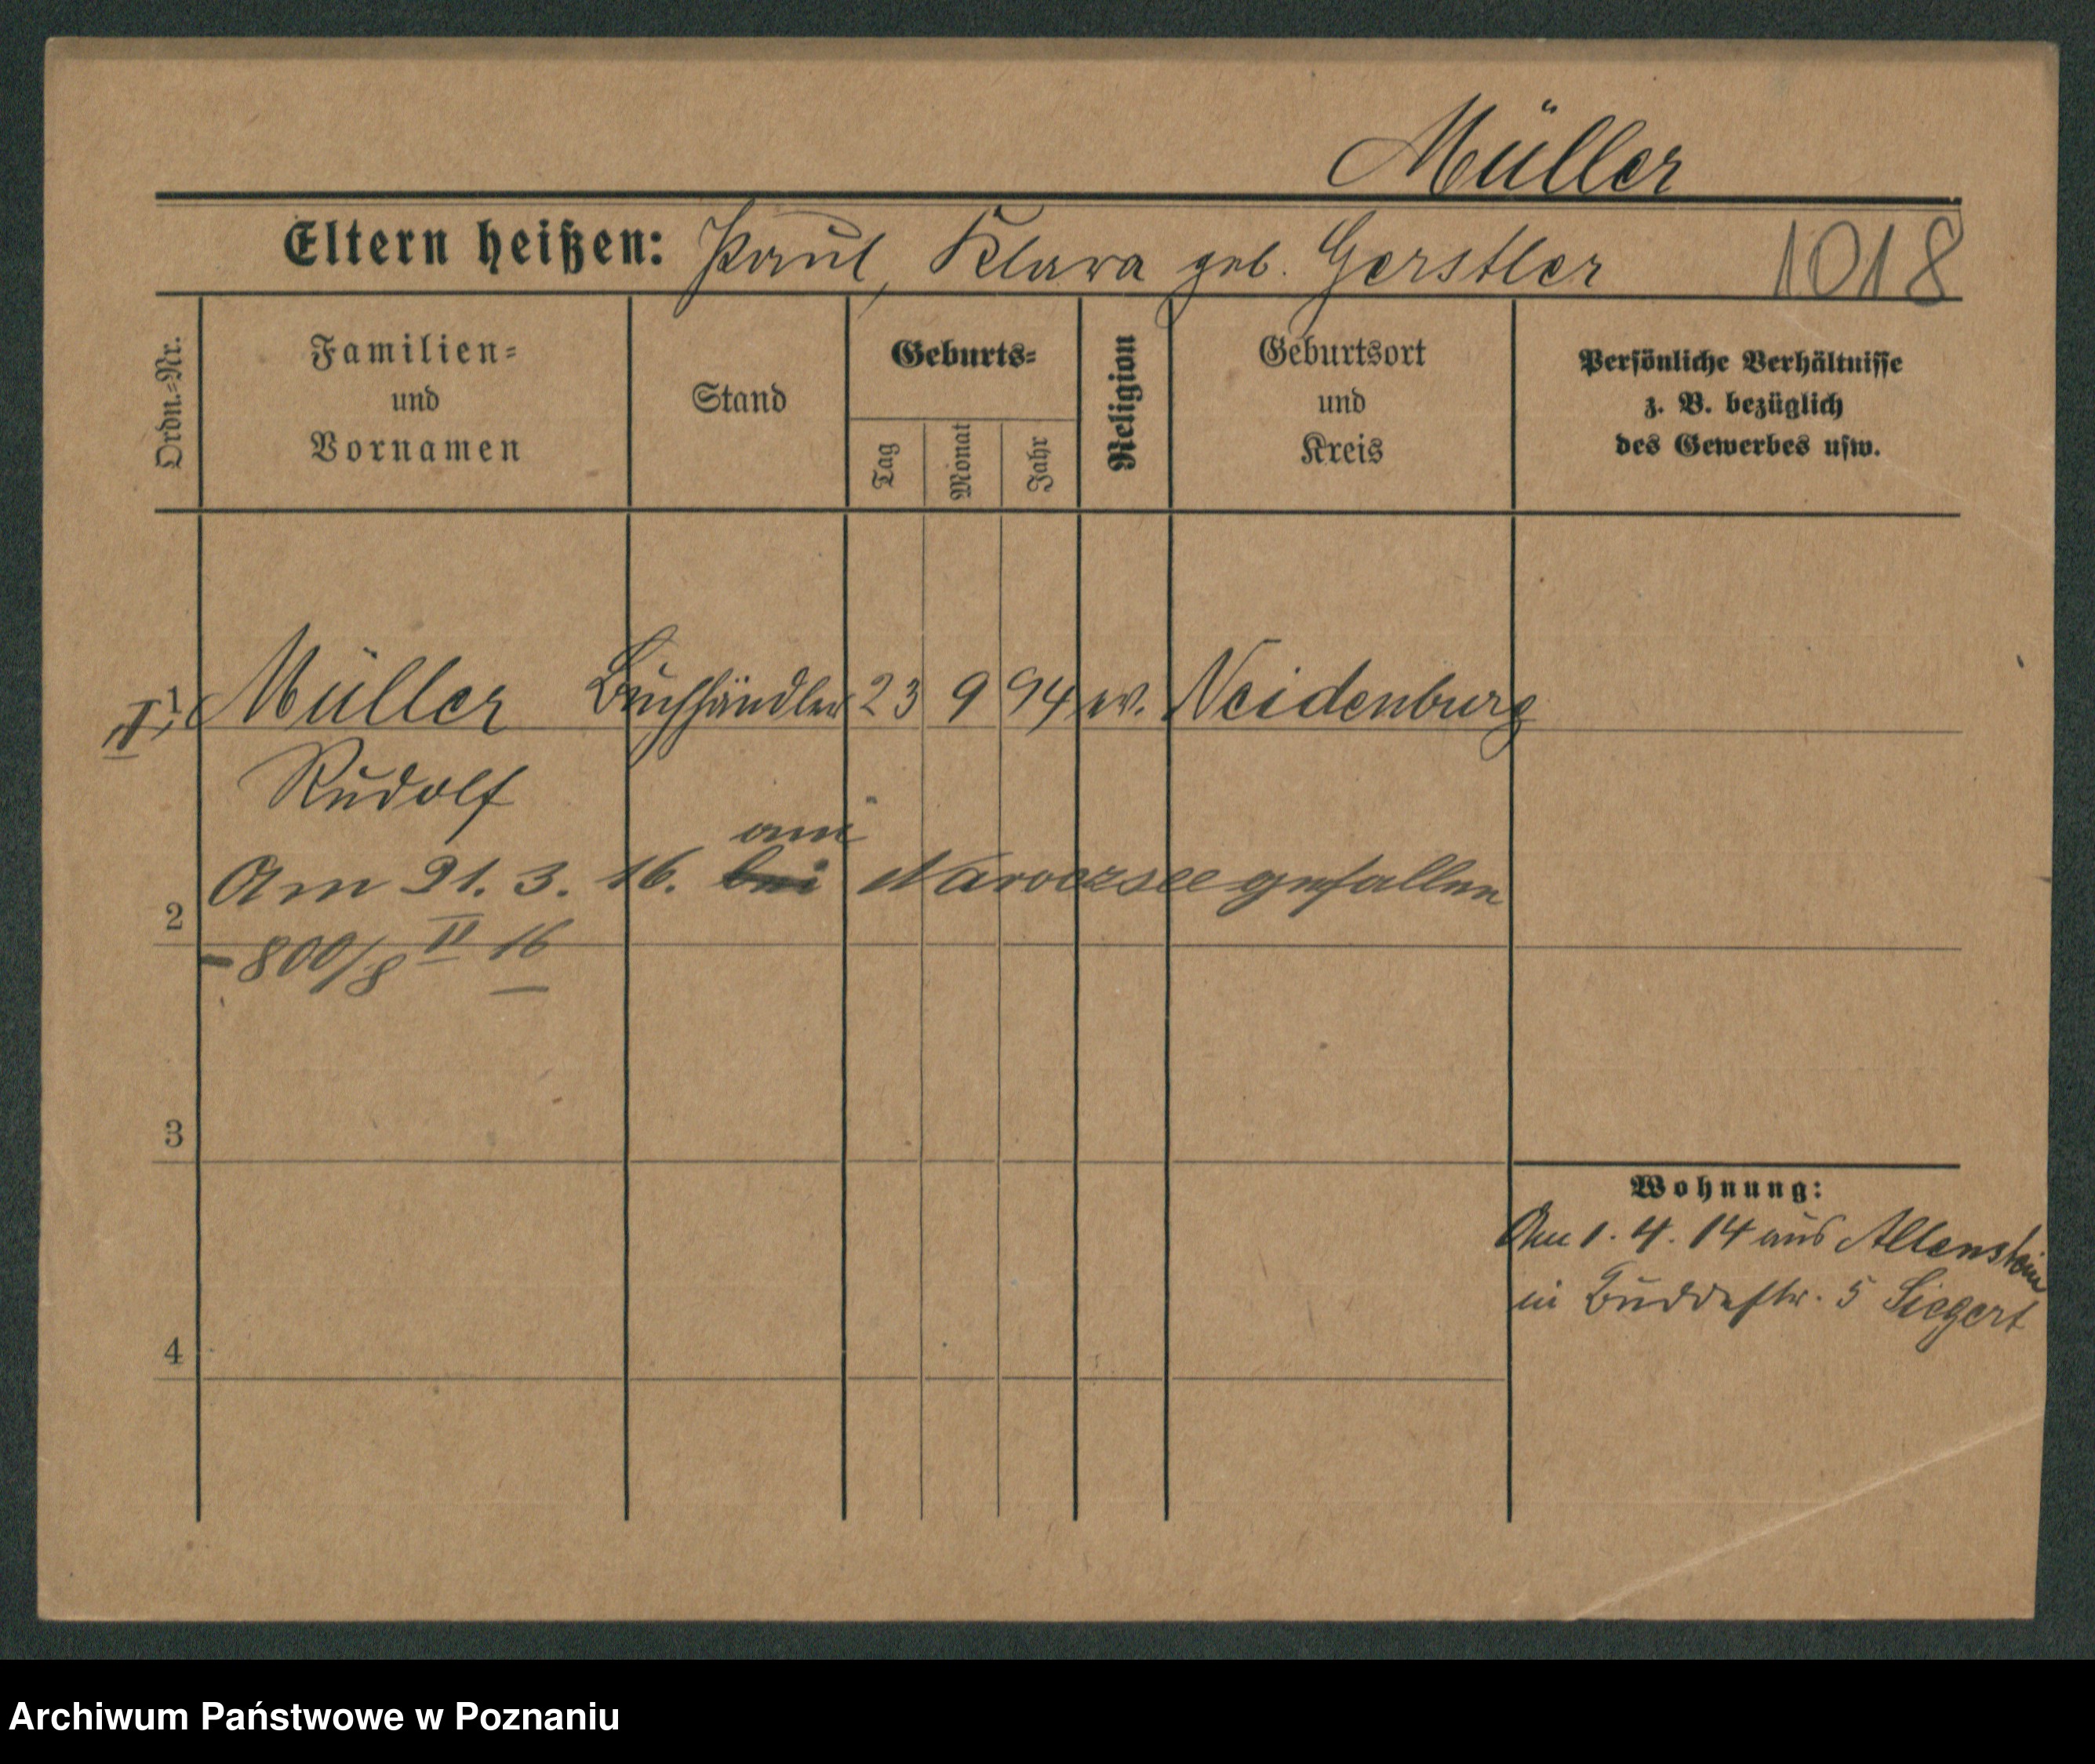 Müller
Eltern heißen: Paul, Klara geb. Gerstler 1018
Ordn.-Nr.
Familien-
und
Vornamen
Stand
Geburts-
Tag
Monat
Jahr
Religion
Geburtsort
und
Kreis
Persönliche Verhältnisse
z. B. bezüglich
des Gewerbes usw.
1 Müller Buchhändler 23 9 94 ev. Neidenburg
Rudolf
am
Am 21. 3. 16. bei Naroczsee gefallen
2
800/8 II 16
3
4
Wohnung:
Am 1. 4. 14 aus Allenstein
in Buddestr. 5 Siegert
Archiwum Państwowe w Poznaniu